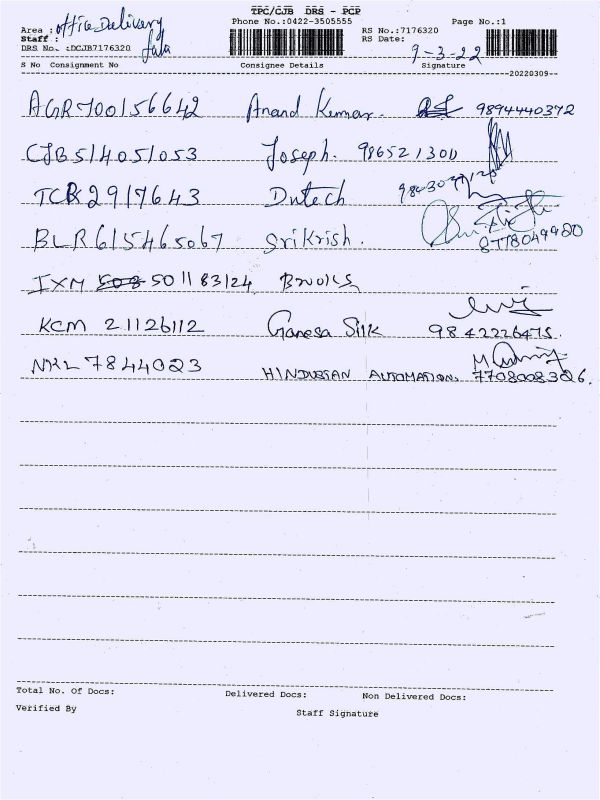 TPC/CJB DRS - PCP
Area : office Delivery Phone No.:0422-3505555 RS No.:7176320 Page No.:1
Staff : RS Date: 9-3-22
DRS No. :DCJB7176320
S No Consignment No Consignee Details Signature
20220309
AGR700156642 Anand Kumar. 9894440372
CJB514051053 Joseph. 986521300
TCR2917643 Dutech
BLR615465067 Sri Krish. 8778049980
IXM 501183124
KCM 21126112 Ganesa Silk 9842226475.
NKL 7844023 HINDUSTAN AUTOMATION. 7708008326.
Total No. Of Docs: Delivered Docs: Non Delivered Docs:
Verified By Staff Signature